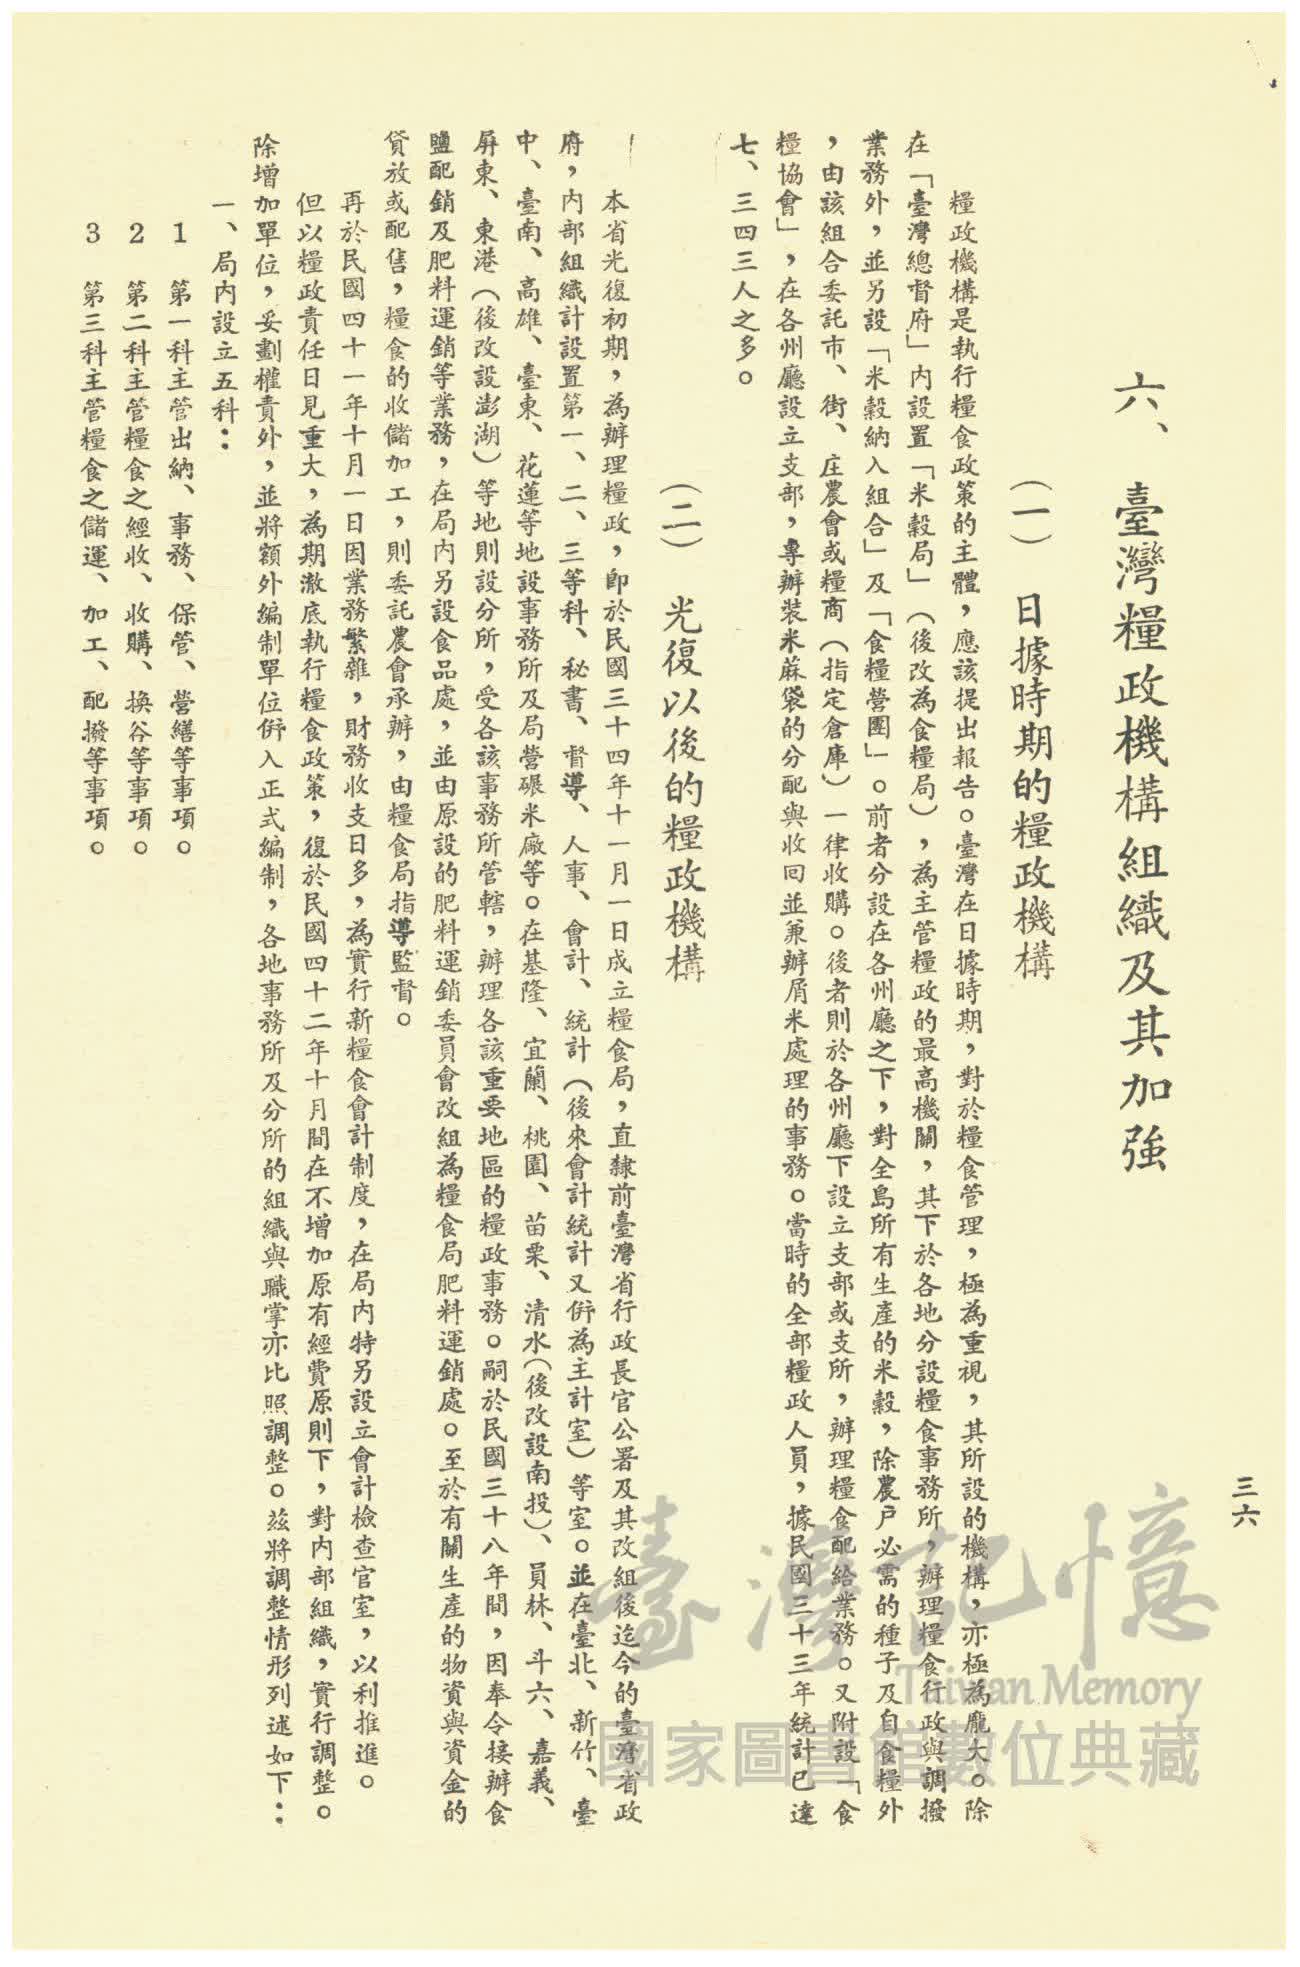 三六
六、臺灣糧政機構組織及其加強
(一) 日據時期的糧政機構
糧政機構是執行糧食政策的主體，應該提出報告。臺灣在日據時期，對於糧食管理，極為重視，其所設的機構，亦極為龐大。除
在「臺灣總督府」內設置「米穀局」（後改為食糧局），為主管糧政的最高機關，其下於各地分設糧食事務所，辦理糧食行政與調撥
業務外，並另設「米穀納入組合」及「食糧營團」。前者分設在各州廳之下，對全島所有生產的米穀，除農戶必需的種子及自食糧外
，由該組合委託市、街、庄農會或糧商（指定倉庫）一律收購。後者則於各州廳下設立支部或支所，辦理糧食配給業務。又附設「食
糧協會」，在各州廳設立支部，專辦裝米蔴袋的分配與收回並兼辦屑米處理的事務。當時的全部糧政人員，據民國三十三年統計已達
七、三四三人之多。
(二) 光復以後的糧政機構
本省光復初期，為辦理糧政，即於民國三十四年十一月一日成立糧食局，直隸前臺灣省行政長官公署及其改組後迄今的臺灣省政
府，內部組織計設置第一、二、三等科、秘書、督導、人事、會計、統計（後來會計統計又併為主計室）等室。並在臺北、新竹、臺
中、臺南、高雄、臺東、花蓮等地設事務所及局營碾米廠等。在基隆、宜蘭、桃園、苗栗、清水（後改設南投）、員林、斗六、嘉義、
屏東、東港（後改設澎湖）等地則設分所，受各該事務所管轄，辦理各該重要地區的糧政事務。嗣於民國三十八年間，因奉令接辦食
鹽配銷及肥料運銷等業務，在局內另設食品處，並由原設的肥料運銷委員會改組為糧食局肥料運銷處。至於有關生產的物資與資金的
貸放或配售，糧食的收儲加工，則委託農會承辦，由糧食局指導監督。
再於民國四十一年十月一日因業務繁雜，財務收支日多，為實行新糧食會計制度，在局內特另設立會計檢查官室，以利推進。
但以糧政責任日見重大，為期澈底執行糧食政策，復於民國四十二年十月間在不增加原有經費原則下，對內部組織，實行調整。
除增加單位，妥劃權責外，並將額外編制單位併入正式編制，各地事務所及分所的組織與職掌亦比照調整。茲將調整情形列述如下：
一、局內設立五科：
1 第一科主管出納、事務、保管、營繕等事項。
2 第二科主管糧食之經收、收購、換谷等事項。
3 第三科主管糧食之儲運、加工、配撥等事項。
臺灣記憶
Taiwan Memory
國家圖書館數位典藏